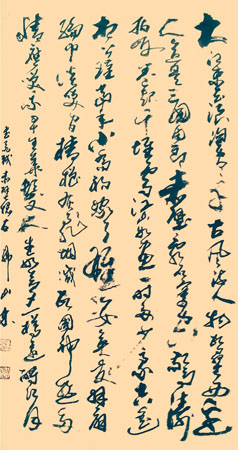 大江東去浪淘盡千古風流人物故壘西邊
人道是三國周郎赤壁亂石穿空驚濤
拍岸捲起千堆雪江山如畫一時多少豪傑遙
想公瑾當年小喬初嫁了雄姿英發羽扇
綸巾談笑間檣櫓灰飛煙滅故國神遊多
情應笑我早生華髮人生如夢一樽還酹江月
赤壁懷古